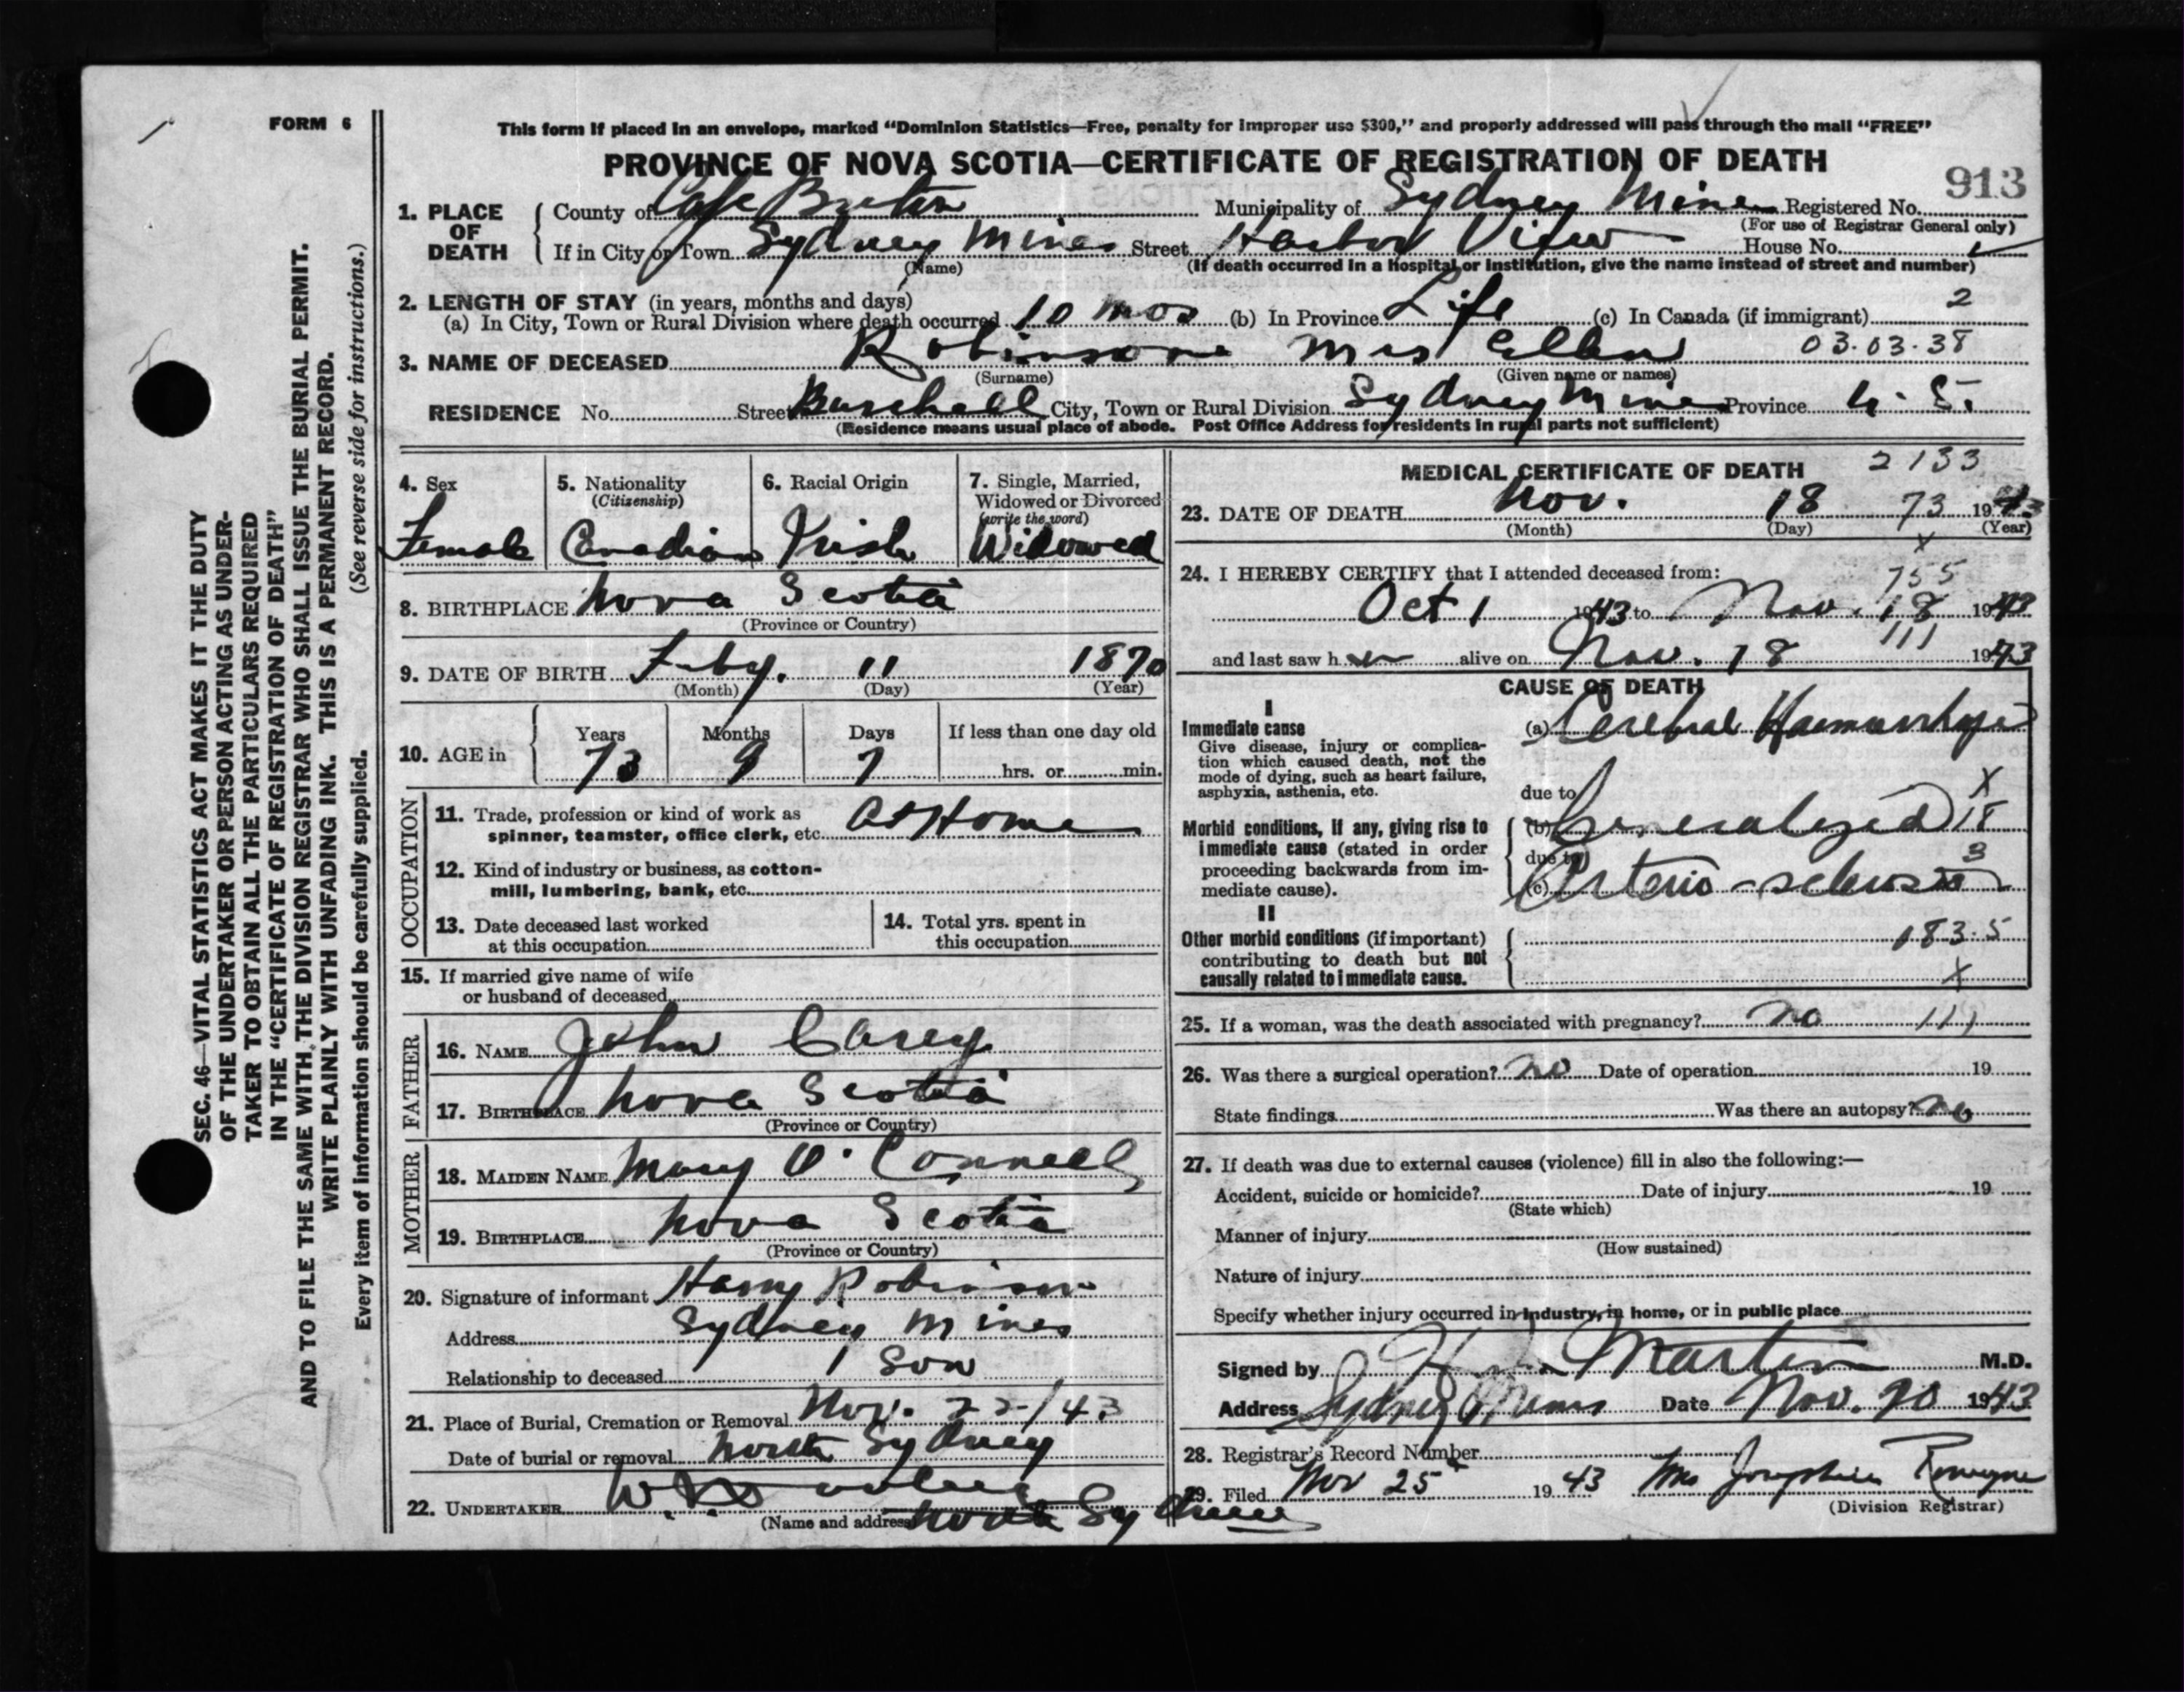 FORM 6
This form if placed in an envelope, marked “Dominion Statistics—Free, penalty for improper use $300,” and properly addressed will pass through the mail “FREE”
PROVINCE OF NOVA SCOTIA—CERTIFICATE OF REGISTRATION OF DEATH
913
1. PLACE OF DEATH { County of Cape Breton Municipality of Sydney Mines Registered No.
(For use of Registrar General only)
If in City or Town Sydney Mines Street Harbor View House No.
(Name) (If death occurred in a Hospital or Institution, give the name instead of street and number)
2. LENGTH OF STAY (in years, months and days) 2
(a) In City, Town or Rural Division where death occurred 10 mos (b) In Province Life (c) In Canada (if immigrant)
3. NAME OF DECEASED Robinson Mrs Ellen 03.03.38
(Surname) (Given name or names)
RESIDENCE No. Street City, Town or Rural Division Sydney Mines Province N.S.
(Residence means usual place of abode. Post Office Address for residents in rural parts not sufficient)
4. Sex Female
5. Nationality (Citizenship) Canadian
6. Racial Origin Irish
7. Single, Married, Widowed or Divorced (write the word) Widowed
8. BIRTHPLACE Nova Scotia
(Province or Country)
9. DATE OF BIRTH Feby. 11 1870
(Month) (Day) (Year)
10. AGE in { Years 73 Months 9 Days 7 If less than one day old
hrs. or min.
OCCUPATION
11. Trade, profession or kind of work as
spinner, teamster, office clerk, etc. At Home
12. Kind of industry or business, as cotton-
mill, lumbering, bank, etc.
13. Date deceased last worked
at this occupation
14. Total yrs. spent in
this occupation
15. If married give name of wife
or husband of deceased
FATHER
16. NAME John Carey
17. BIRTHPLACE Nova Scotia
(Province or Country)
MOTHER
18. MAIDEN NAME Mary O'Connell
19. BIRTHPLACE Nova Scotia
(Province or Country)
20. Signature of informant Harry Robinson
Address Sydney Mines
Relationship to deceased Son
21. Place of Burial, Cremation or Removal Nov. 22/43
Date of burial or removal North Sydney
22. UNDERTAKER
(Name and address) North Sydney
MEDICAL CERTIFICATE OF DEATH 2133
23. DATE OF DEATH Nov. 18 73 1943
(Month) (Day) (Year)
x
24. I HEREBY CERTIFY that I attended deceased from:
755
Oct 1 1943 to Nov. 18 1943
111
and last saw her alive on Nov. 18 1943
CAUSE OF DEATH
I
Immediate cause (a) Cerebral Haemorrhage
Give disease, injury or complica-
tion which caused death, not the
mode of dying, such as heart failure,
asphyxia, asthenia, etc. due to x
Morbid conditions, if any, giving rise to (b) Generalized 18
immediate cause (stated in order due to 3
proceeding backwards from im-
mediate cause). (c) Arterio-sclerosis
II
Other morbid conditions (if important) 183.5
contributing to death but not
causally related to immediate cause. x
25. If a woman, was the death associated with pregnancy? no 111
26. Was there a surgical operation? no Date of operation 19
State findings Was there an autopsy? no
27. If death was due to external causes (violence) fill in also the following:—
Accident, suicide or homicide? Date of injury 19
(State which)
Manner of injury
(How sustained)
Nature of injury
Specify whether injury occurred in industry, in home, or in public place
Signed by Martin M.D.
Address Sydney Mines Date Nov. 20 1943
28. Registrar's Record Number
29. Filed Nov 25 1943 Mrs Josephine
(Division Registrar)
SEC. 46—VITAL STATISTICS ACT MAKES IT THE DUTY
OF THE UNDERTAKER OR PERSON ACTING AS UNDER-
TAKER TO OBTAIN ALL THE PARTICULARS REQUIRED
IN THE “CERTIFICATE OF REGISTRATION OF DEATH”
AND TO FILE THE SAME WITH THE DIVISION REGISTRAR WHO SHALL ISSUE THE BURIAL PERMIT.
WRITE PLAINLY WITH UNFADING INK. THIS IS A PERMANENT RECORD.
Every item of information should be carefully supplied. (See reverse side for instructions.)